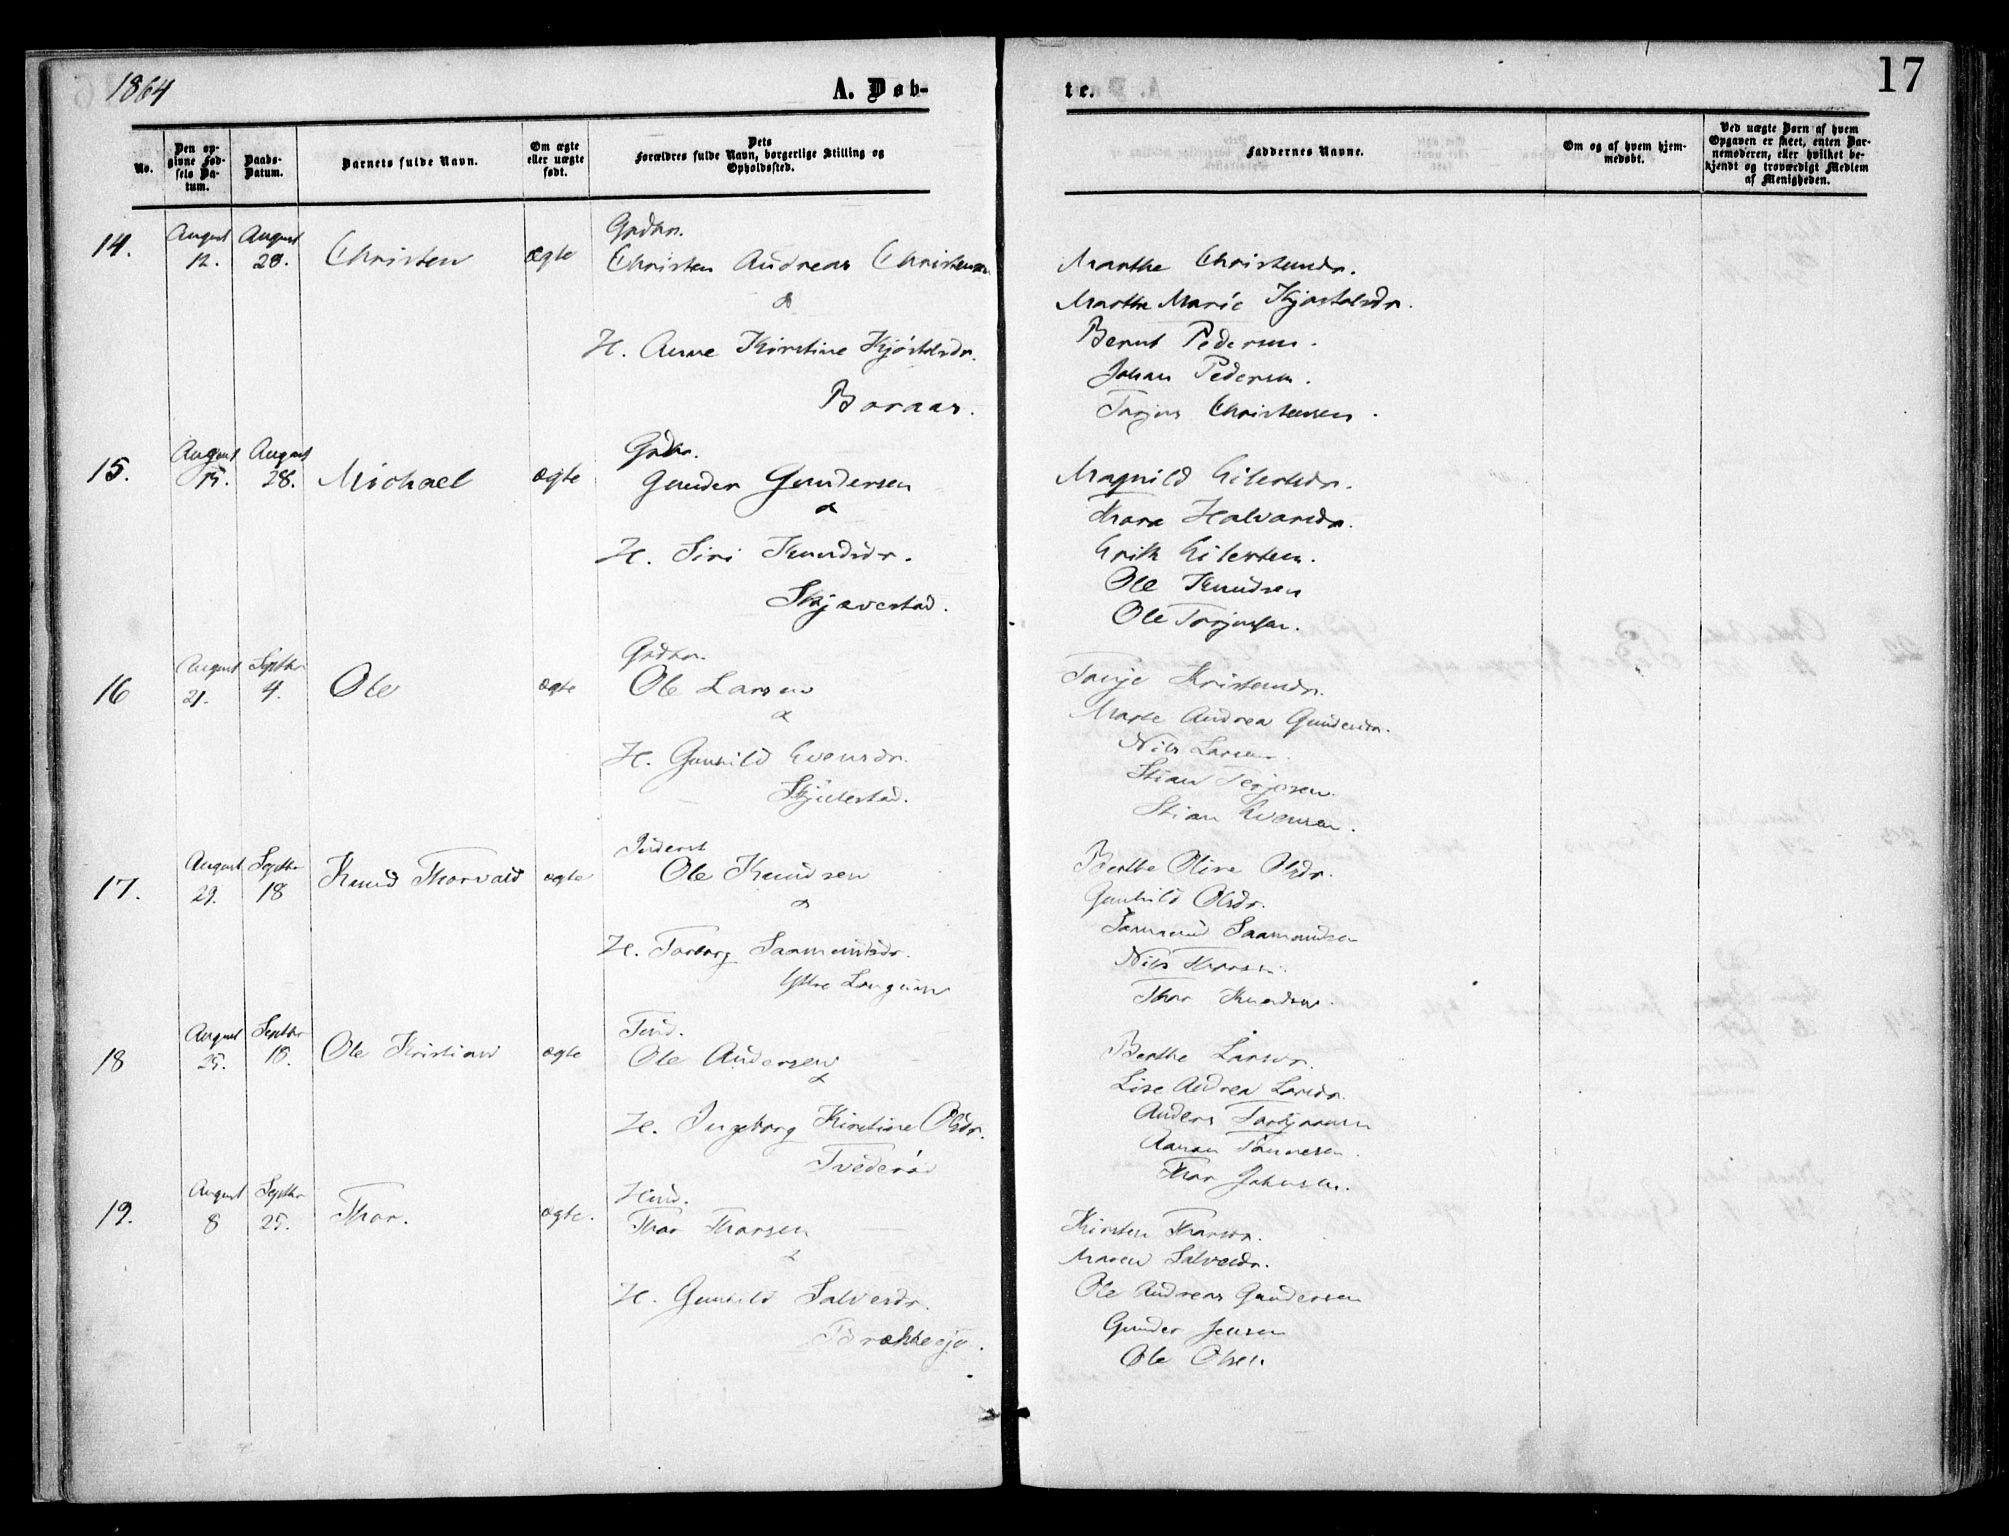 1864
A. Døb-
No.
Den op-
givne Fød-
sels Da-
tum.
Daabs-
Datum.
Barnets fulde Navn.
Om ægte
eller uægte
født.
Dets
Forældres fulde Navn, borgerlige Stilling og
Opholdssted.
14.
August
12.
August
28.
Christen
ægte
Grdbr.
Christen Andreas Christensen
&
H. Anne Kirstine Kjøstelsdr.
Boraas.
15.
August
15.
August
28.
Michael
ægte
Grdbr.
Gunder Gundersen
&
H. Siri Knudsdr.
Skjævestad.
16
August
21.
Septbr
4.
Ole
ægte
Grdbr.
Ole Larsen
&
H. Gunhild Evensdr.
Skjulestad.
17.
August
29.
Septbr
18
Knud Thorvald
ægte
Inderst
Ole Knudsen
&
H. Torborg Saamundsdr.
Yttre Langum
18
August
25.
Septbr
18.
Ole Kristian
ægte
Ole Andersen
&
H. Ingeborg Kirstine Olsdr.
Tvederød
19.
August
8
Septbr
25.
Thor.
ægte.
Huusm.
Thor Thorsen
&
H. Gunhild Salvesdr.
te.
17
Faddernes Navne.
Om og af hvem hjem-
medøbt.
Ved uægte Børn af hvem
Opgaven er skeet, enten Bar-
nemoderen, eller hvilket be-
kjendt og troværdigt Medlem
af Menigheden.
Marthe Christensdr.
Marthe Marie Kjøstelsdr.
Bernt Pedersen.
Johan Pedersen.
Torjus Christensen.
Magnild Eilertsdr.
Thora Halvorsdr.
Erik Eilertsen.
Ole Knudsen
Ole Torjusen.
Tarje Kristensdr.
Marte Andrea Gundersdr.
Nils Larsen.
Stian Terjesen.
Stian Evensen.
Berthe Oline Olsdr.
Gunhild Olsdr.
Saamund Saamundsen
Nils Thorsen.
Thor Knudsen.
Berthe Larsdr.
Lise Andrea Larsdr.
Anders
Aanon Tønnesen.
Thor Johnsen.
Kirsten Thorsdr.
Maren Salvesdr.
Ole Andreas Gundersen
Gunder Jensen
Ole Olsen